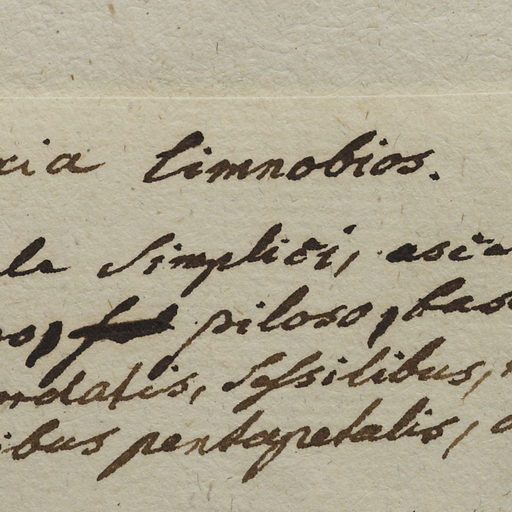 ria limnobios.
le simplici, asce
ro, piloso, bas
ordatis, sessilibus,
ibus pentapetalis,